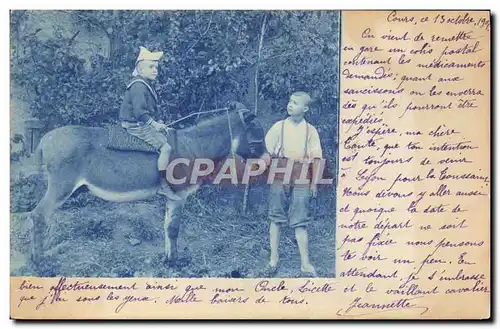 Cours, ce 13 octobre, 190
On vient de remettre
en gare un colis postal
contenant les médicaments
demandés ; quant aux
saucissons on les enverra
dès qu'ils pourront être
expédiés
J'espère, ma chère
tante, que ton intention
est toujours de venir
Lyon pour la Toussaint
Nous devons y aller aussi
et quoique la date de
notre départ ne soit
pas fixée nous pensons
te voir un peu. En
attendant, je t'embrasse
bien affectueusement ainsi que mon Oncle, Lisette et le vaillant cavalier
que j'ai sous les yeux. Mille baisers de tous. Jeannette
CPARAMA.COM